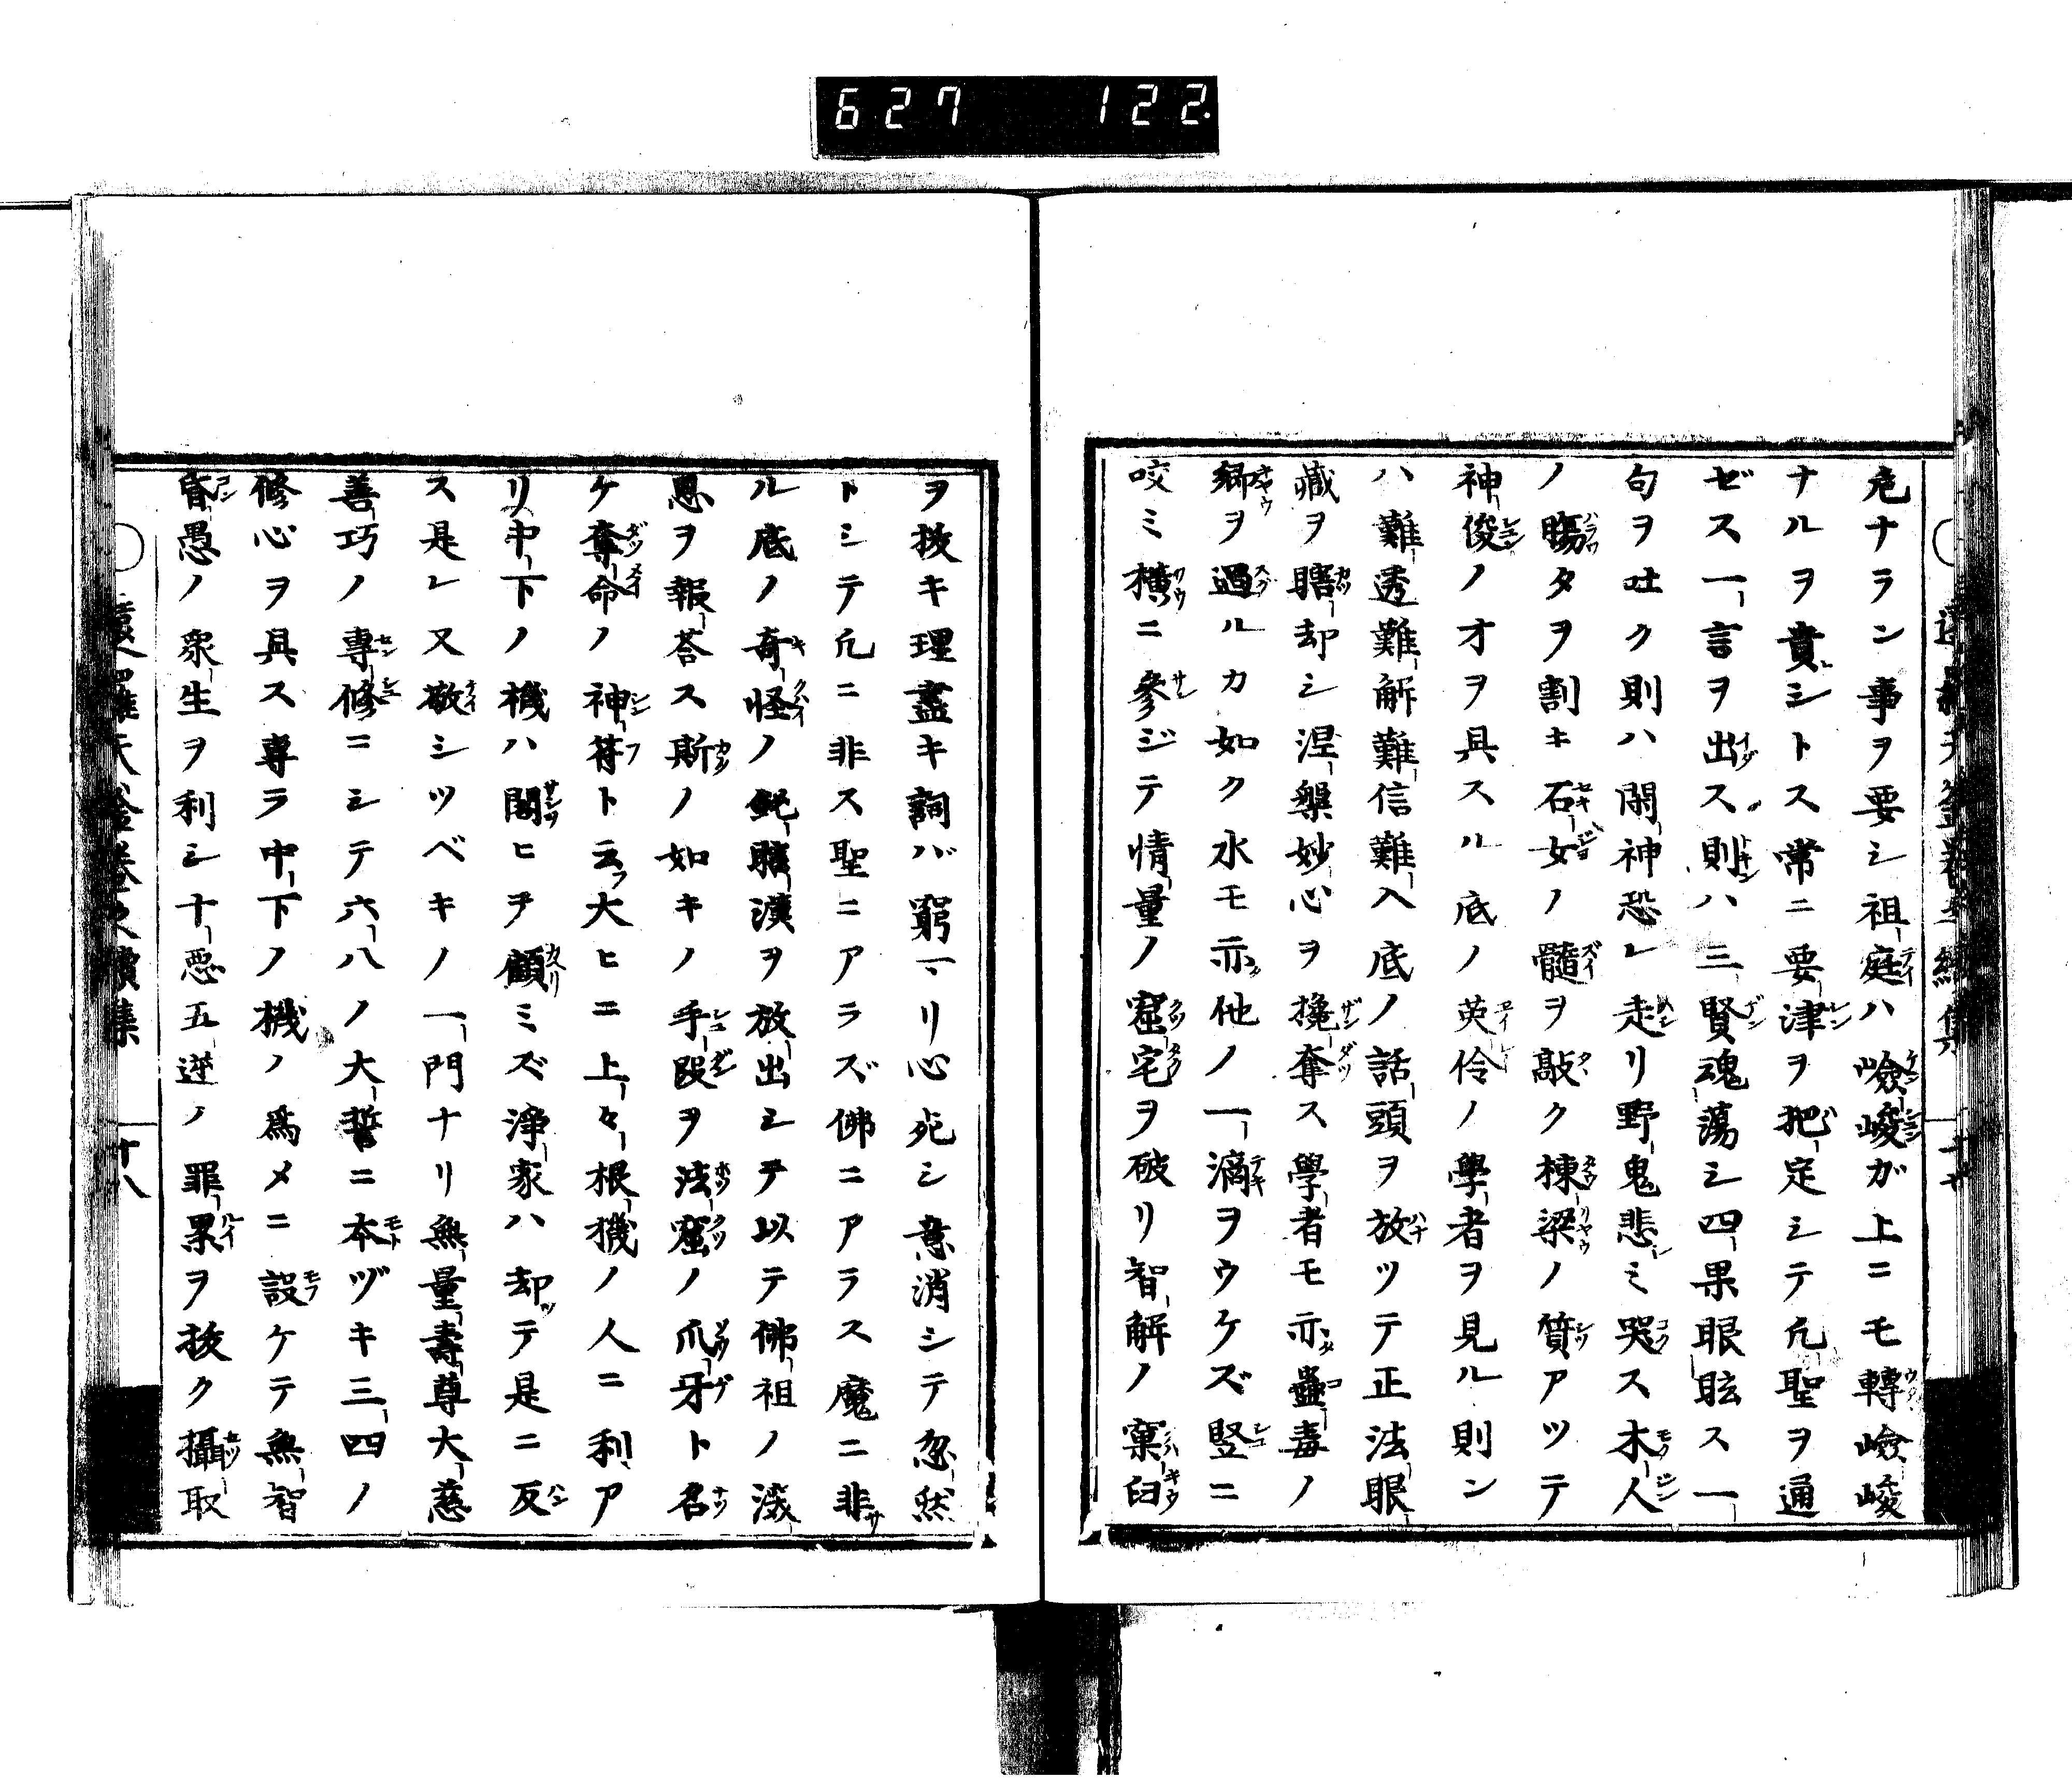 627 122
危ナラン事ヲ要シ祖庭ハ嶮峻ガ上ニモ轉嶮峻
ナルヲ貴シトス常ニ要津ヲ把定シテ凢聖ヲ通
ゼス一言ヲ出ス則ハ三賢魂蕩シ四果眼眩ス一
句ヲ吐ク則ハ閙神恐レ走リ野鬼悲ミ哭ス木人
ノ膓タヲ割キ石女ノ髓ヲ敲ク棟梁ノ質アツテ
神俊ノオヲ具スル底ノ英伶ノ學者ヲ見ル則ン
ハ難透難解難信難入底ノ話頭ヲ放ツテ正法眼
藏ヲ瞎却シ涅槃妙心ヲ攙奪ス學者モ亦蠱毒ノ
郷ヲ過ルカ如ク水モ亦他ノ一滴ヲウケズ竪ニ
咬ミ横ニ參ジテ情量ノ窟宅ヲ破リ智解ノ窠臼
ヲ拔キ理盡キ詞バ窮マリ心死シ意消シテ忽然
トシテ凢ニ非ス聖ニアラズ佛ニアラス魔ニ非
ル底ノ奇怪ノ鈍瞎漢ヲ放出シテ以テ佛祖ノ深
恩ヲ報荅ス斯ノ如キノ手段ヲ法窟ノ爪牙ト名
ケ奪命ノ神符ト云大ヒニ上々根機ノ人ニ利ア
リ中下ノ機ハ閣ヒヲ顧ミズ浄家ハ却テ是ニ反
ス是レ又敬シツベキノ一門ナリ無量壽尊大慈
善巧ノ專修ニシテ六八ノ大誓ニ本ヅキ三四ノ
修心ヲ具ス專ラ中下ノ機ノ爲メニ設ケテ無智
昏愚ノ衆生ヲ利シ十惡五逆ノ罪累ヲ拔ク攝取
十八